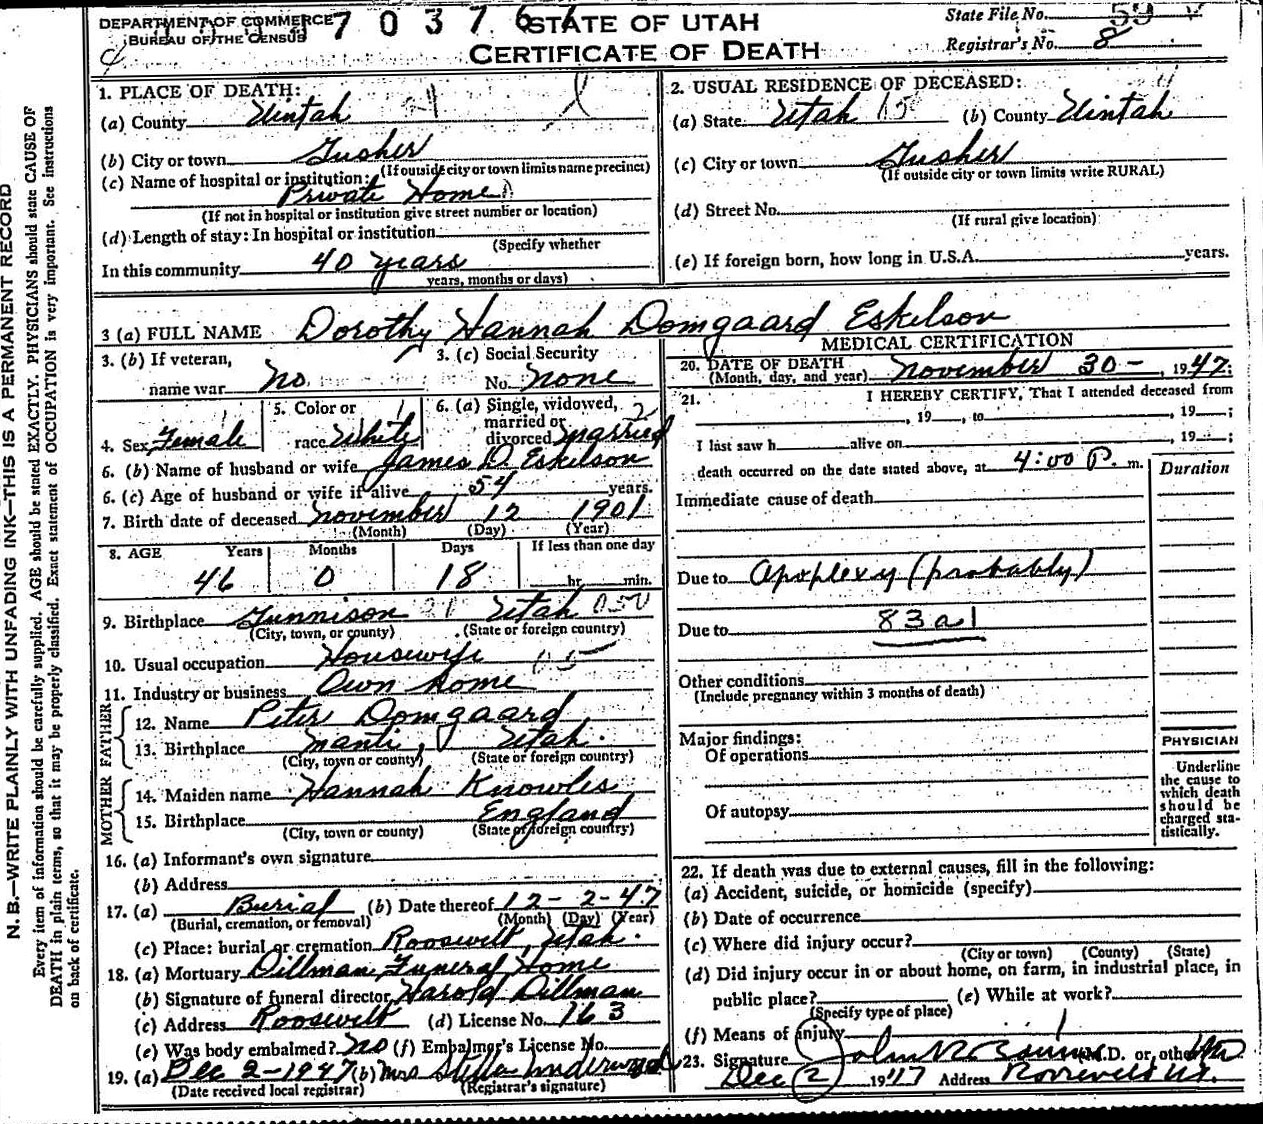 DEPARTMENT OF COMMERCE
BUREAU OF THE CENSUS
7 0 3 7 6
STATE OF UTAH
CERTIFICATE OF DEATH
State File No. 59
Registrar's No. 8
N. B.—WRITE PLAINLY WITH UNFADING INK—THIS IS A PERMANENT RECORD
Every item of information should be carefully supplied. AGE should be stated EXACTLY. PHYSICIANS should state CAUSE OF
DEATH in plain terms, so that it may be properly classified. Exact statement of OCCUPATION is very important. See instructions
on back of certificate.
1. PLACE OF DEATH:
(a) County Uintah
(b) City or town Tusher
(If outside city or town limits name precinct)
(c) Name of hospital or institution:
Private Home
(If not in hospital or institution give street number or location)
(d) Length of stay: In hospital or institution
(Specify whether
In this community 40 years
years, months or days)
2. USUAL RESIDENCE OF DECEASED:
(a) State Utah 15 (b) County Uintah
(c) City or town Tusher
(If outside city or town limits write RURAL)
(d) Street No.
(If rural give location)
(e) If foreign born, how long in U.S.A. years.
3 (a) FULL NAME Dorothy Hannah Domgaard Eskelson
3. (b) If veteran,
name war no
3. (c) Social Security
No. none
4. Sex Female
5. Color or
race White
6. (a) Single, widowed,
married or
divorced married
6. (b) Name of husband or wife James D. Eskelson
6. (c) Age of husband or wife if alive 54 years.
7. Birth date of deceased November 12 1901
(Month) (Day) (Year)
8. AGE Years Months Days If less than one day
46 0 18 hr. min.
9. Birthplace Gunnison Utah
(City, town, or county) (State or foreign country)
10. Usual occupation Housewife
11. Industry or business Own home
FATHER
12. Name Peter Domgaard
13. Birthplace Manti, Utah.
(City, town or county) (State or foreign country)
MOTHER
14. Maiden name Hannah Knowles
15. Birthplace England
(City, town or county) (State or foreign country)
16. (a) Informant's own signature
(b) Address
17. (a) Burial (b) Date thereof 12-2-47
(Burial, cremation, or removal) (Month) (Day) (Year)
(c) Place: burial or cremation Roosevelt, Utah.
18. (a) Mortuary Dillman Funeral Home
(b) Signature of funeral director Harold Dillman
(c) Address Roosevelt (d) License No. 163
(e) Was body embalmed? no (f) Embalmer's License No.
19. (a) Dec 2-1947 (b) Mrs Stella Underwood
(Date received local registrar) (Registrar's signature)
MEDICAL CERTIFICATION
20. DATE OF DEATH
(Month, day, and year) November 30 - , 1947;
21. I HEREBY CERTIFY, That I attended deceased from
, 19 , to , 19 ;
I last saw h alive on , 19 ;
death occurred on the date stated above, at 4:00 P. m.
Duration
Immediate cause of death
Due to apoplexy (probably)
Due to 83a1
Other conditions
(Include pregnancy within 3 months of death)
Major findings:
Of operations
Of autopsy
PHYSICIAN
Underline
the cause to
which death
should be
charged sta-
tistically.
22. If death was due to external causes, fill in the following:
(a) Accident, suicide, or homicide (specify)
(b) Date of occurrence
(c) Where did injury occur?
(City or town) (County) (State)
(d) Did injury occur in or about home, on farm, in industrial place, in
public place? (e) While at work?
(Specify type of place)
(f) Means of injury
23. Signature John R. M.D. or other
Dec 2 1947 Address Roosevelt Ut.